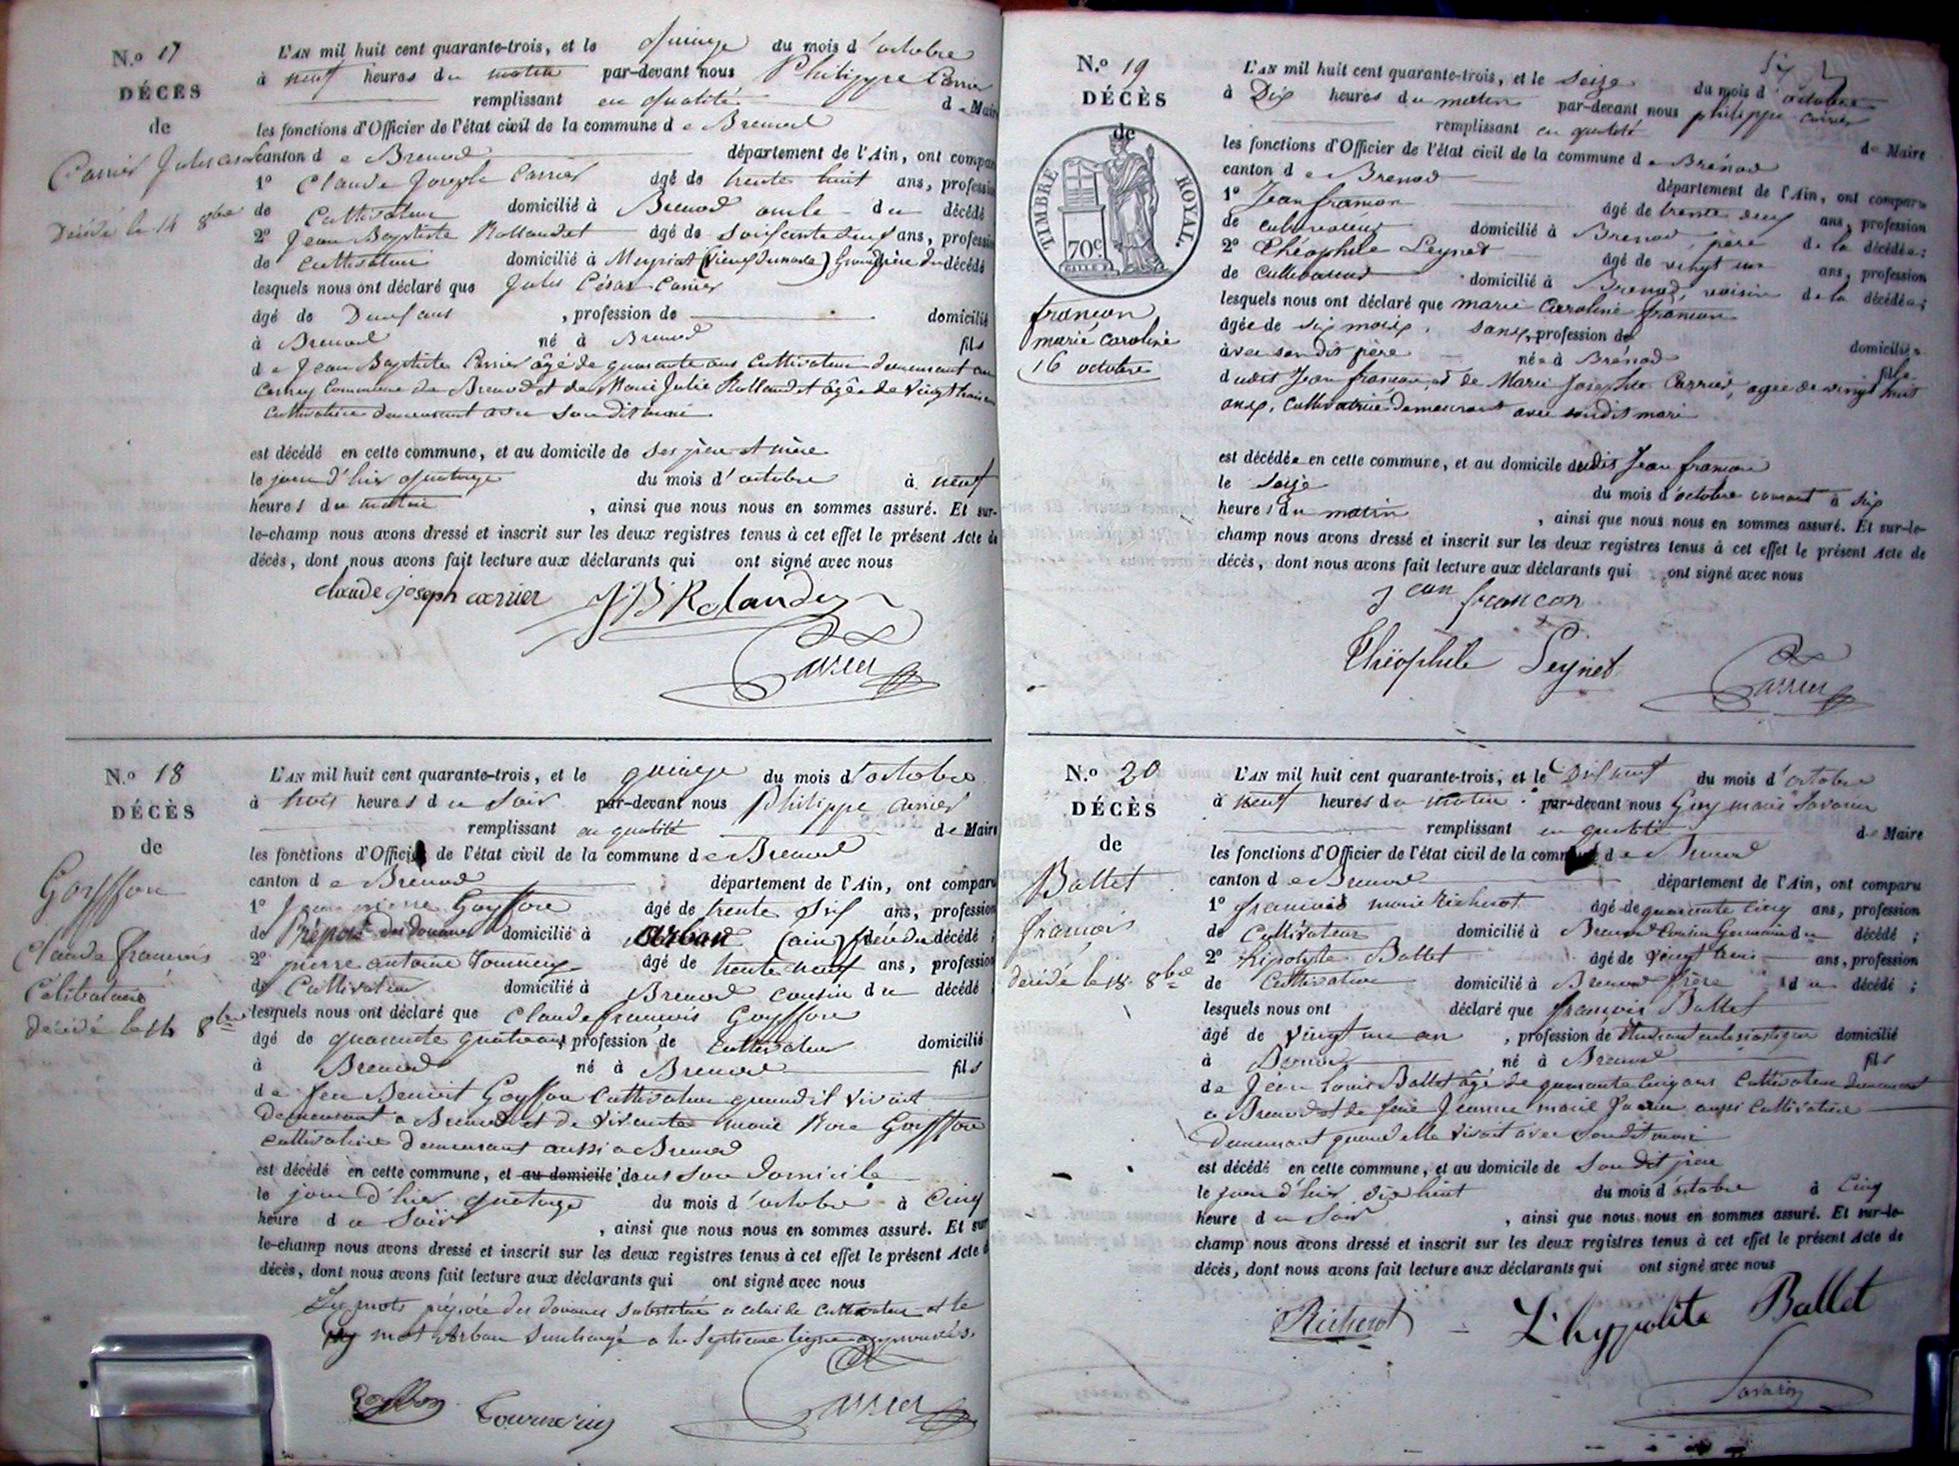 N.º 17
DÉCÈS
de
Carrier Jules César
Décédé le 14 8bre
L'AN mil huit cent quarante-trois, et le quinze du mois d'octobre
à neuf heures du matin par-devant nous Philippe Carrier
remplissant en qualité de Maire
les fonctions d'Officier de l'état civil de la commune de Brenod
canton de Brenod département de l'Ain, ont comparu
1º Claude Joseph Carrier âgé de trente huit ans, profession
de Cultivateur domicilié à Brenod oncle du décédé
2º Jean Baptiste Rollandet âgé de soixante deux ans, profession
de cultivateur domicilié à Meyriat (Vieux d'Izenave) Grand père du décédé
lesquels nous ont déclaré que Jules César Carrier
âgé de Deux ans, profession de domicilié
à Brenod né à Brenod fils
de Jean Baptiste Carrier âgé de quarante ans cultivateur demeurant au
Commune de Brenod et de Marie Julie Rollandet âgée de vingt trois ans
cultivatrice demeurant avec son dit mari
est décédé en cette commune, et au domicile de ses père et mère
le jour d'hier quatorze du mois d'octobre à neuf
heures du matin, ainsi que nous nous en sommes assuré. Et sur-
le-champ nous avons dressé et inscrit sur les deux registres tenus à cet effet le présent Acte de
décès, dont nous avons fait lecture aux déclarants qui ont signé avec nous
claude joseph carrier J B Rolandez
Carrier
N.º 18
DÉCÈS
de
Goyffon
Claude françois
Célibataire
décédé le 14 8bre
L'AN mil huit cent quarante-trois, et le quinze du mois d'octobre
à trois heures du soir par-devant nous Philippe Carrier
remplissant en qualité de Maire
les fonctions d'Officier de l'état civil de la commune de Brenod
canton de Brenod département de l'Ain, ont comparu
1º pierre Goyffon âgé de trente six ans, profession
de Préposé des douanes domicilié à Arban (ain) frère du décédé ;
2º pierre antoine Tournery âgé de trente neuf ans, profession
de Cultivateur domicilié à Brenod cousin du décédé
lesquels nous ont déclaré que Claude françois Goyffon
âgé de quarante quatre ans, profession de cultivateur domicilié
à Brenod né à Brenod fils
de feu Benoit Goyffon Cultivateur quand il vivait
demeurant a Brenod et de vivante marie Rose Goyffon
cultivatrice demeurant aussi a Brenod
est décédé en cette commune, et au domicile dans son domicile
le jour d'hier quatorze du mois d'octobre à cinq
heure du soir, ainsi que nous nous en sommes assuré. Et sur
le-champ nous avons dressé et inscrit sur les deux registres tenus à cet effet le présent Acte d
décès, dont nous avons fait lecture aux déclarants qui ont signé avec nous
Les mots préposé des douanes substitués a celui de cultivateur et le
mot Arban surchargé a la septieme ligne approuvés.
Goyffon Tournery Carrier
N.º 19
DÉCÈS
de
TIMBRE ROYAL.
70 c
francon
marie caroline
16 octobre
L'AN mil huit cent quarante-trois, et le seize du mois d'octobre
à Dix heures du matin par-devant nous philippe carrier
remplissant en qualité de Maire
les fonctions d'Officier de l'état civil de la commune de Brénod
canton de Brenod département de l'Ain, ont comparu
1º Jean francon âgé de trente deux ans, profession
de cultivateur domicilié à Brenod, père de la décédée ;
2º Théophile Peynet âgé de vingt un ans, profession
de cultivateur domicilié à Brenod, voisin de la décédée ;
lesquels nous ont déclaré que marie Caroline francon
âgée de six mois, sans profession de domiciliée
avec son dit père née à Brénod fille
dudit Jean francon et de Marie Josephte Carrier, agée de vingt huit
ans, cultivatrice demeurant avec sondit mari
est décédée en cette commune, et au domicile dudit Jean francon
le seize du mois d'octobre courant à six
heures du matin, ainsi que nous nous en sommes assuré. Et sur-le-
champ nous avons dressé et inscrit sur les deux registres tenus à cet effet le présent Acte de
décès, dont nous avons fait lecture aux déclarants qui ont signé avec nous
jean francon
Théophile Peynet Carrier
N.º 20
DÉCÈS
de
Ballet
françois
décédé le 18 8bre
L'AN mil huit cent quarante-trois, et le Dix neuf du mois d'octobre
à neuf heures du matin par-devant nous Guy marie Savarin
remplissant en qualité de Maire
les fonctions d'Officier de l'état civil de la commune de Brenod
canton de Brenod département de l'Ain, ont comparu
1º françois marie Richerot âgé de quarante cinq ans, profession
de Cultivateur domicilié à Brenod Cousin Germain du décédé ;
2º hipolyte Ballet âgé de vingt trois ans, profession
de Cultivateur domicilié à Brenod frère du décédé ;
lesquels nous ont déclaré que françois Ballet
âgé de vingt un an, profession de Etudiant ecclesiastique domicilié
à Brenod né à Brenod fils
de Jean Louis Ballet âgé de quarante cinq ans Cultivateur demeurant
a Brenod et de feue Jeanne marie aussi cultivatrice
demeurant quand elle vivait avec son dit mari
est décédé en cette commune, et au domicile de son dit père
le jour d'hier dix huit du mois d'octobre à cinq
heure du soir, ainsi que nous nous en sommes assuré. Et sur-le-
champ nous avons dressé et inscrit sur les deux registres tenus à cet effet le présent Acte de
décès, dont nous avons fait lecture aux déclarants qui ont signé avec nous
Richerot L'hyppolite Ballet
Savarin